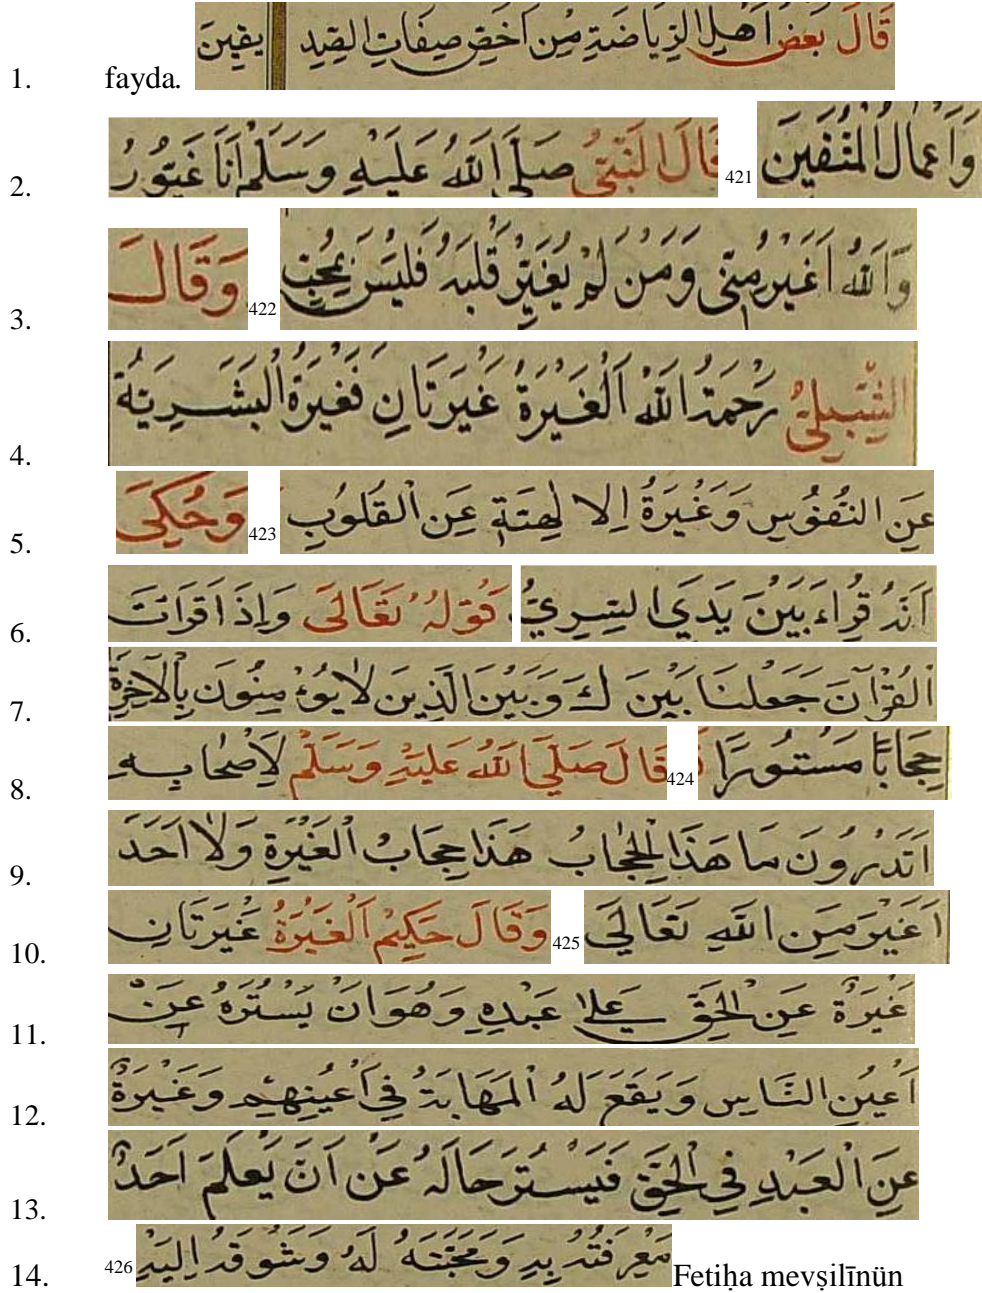 1. fayda. قَالَ بَعْضُ اَهْلِ الرِّيَاضَةِ مِنْ اَخَصِّ صِفَاتِ الصِّدِّ يقِينَ
2. وَاَعْمَالُ الْمُتَّقِينَ 421 قَالَ النَّبِيُّ صَلَّى اللّٰهُ عَلَيْهِ وَسَلَّمْ اَنَا غَيُورُ
3. وَاَللّٰهُ اَغْيَرُ مِنّى وَمَنْ لَمْ يُغَيِّرْ قَلْبَهُ فَلَيْسَ بِمُحِبٍّ 422 وَقَالَ
4. الشِّبْلِىُّ رَحْمَةُ اللّٰهْ اَلْغَيْرَةُ غَيْرَتَانِ فَغَيْرَةُ الْبَشَرِيَّةُ
5. عَنِ النُّفُوسِ وَغَيْرَةُ اِلا لٰهِيَّةِ عَنِ الْقُلُوبِ 423 وَحُكِىَ
6. اَنَّهُ قُرِاءَ بَيْنَ يَدَيِ السِّرِيّ قَوْلُهُ تَعَالَى وَاِذَا قَرَاتَ
7. الْقُرْآنَ جَعَلْنَا بَيْنَ كَ وَبَيْنَ الَّذِينَ لاَ يُوءْ مِنُونَ بِالْآخِرَةِ
8. حِجَابًا مَسْتُورًا 424 قَالَ صَلَّى اللّٰهُ عَلَيْهِ وَسَلَّمْ لِاَصْحَابِهِ
9. اَتَدْرُونَ مَا هَذَا الْحِجَابُ هَذَا حِجَابُ الْغَيْرَةِ وَلاَ اَحَدَ
10. اَغْيَرَ مِنَ اللّٰهِ تَعَالَى 425 وَقَالَ حَكِيمْ اَلْغَيْرَةُ غَيْرَتَانِ
11. غَيْرَةٌ عَنِ الْحَقِّ عَلَى عَبْدِهِ وَهُوَ اَنْ يَسْتُرَهُ عَنْ
12. اَعْيُنِ النَّاسِ وَيَقَعَ لَهُ الْمَهَابَةُ فِى اَعْيُنِهِمْ وَغَيْرَةٌ
13. عَنِ الْعَبْدِ فِى الْحَقِّ فَيَسْتُرَ حَالَهُ عَنْ اَنْ يَعْلَمَ اَحَدٌ
14. مَعْرِفَتُهُ بِهِ وَمَحَبَّتَهُ لَهُ وَشَوْقَهُ اِلَيْهِ 426 Fetiḥa mevṣilīnün